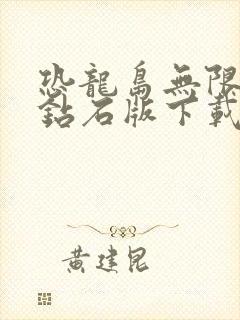 恐龍島無限
鉆石版下載
黃建昆